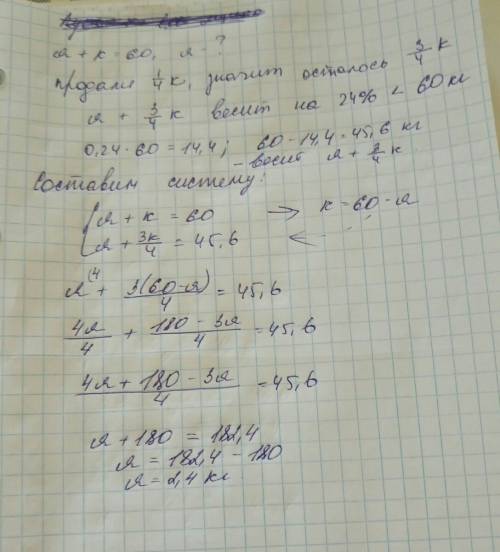 я + к = 60, я - ?
Продали 1/4 к, значит осталось 3/4 к
я + 3/4 к весит на 24% < 60 кг
0,24 · 60 = 14,4; 60 - 14,4 = 45,6 кг
- весит я + 3/4 к
Составим систему:
{ я + к = 60 → к = 60 - я
я + 3к/4 = 45,6 ←
я^(4 + 3(60-я)/4 = 45,6
4я/4 + 180 - 3я/4 = 45,6
4я + 180 - 3я/4 = 45,6
я + 180 = 182,4
я = 182,4 - 180
я = 2,4 кг